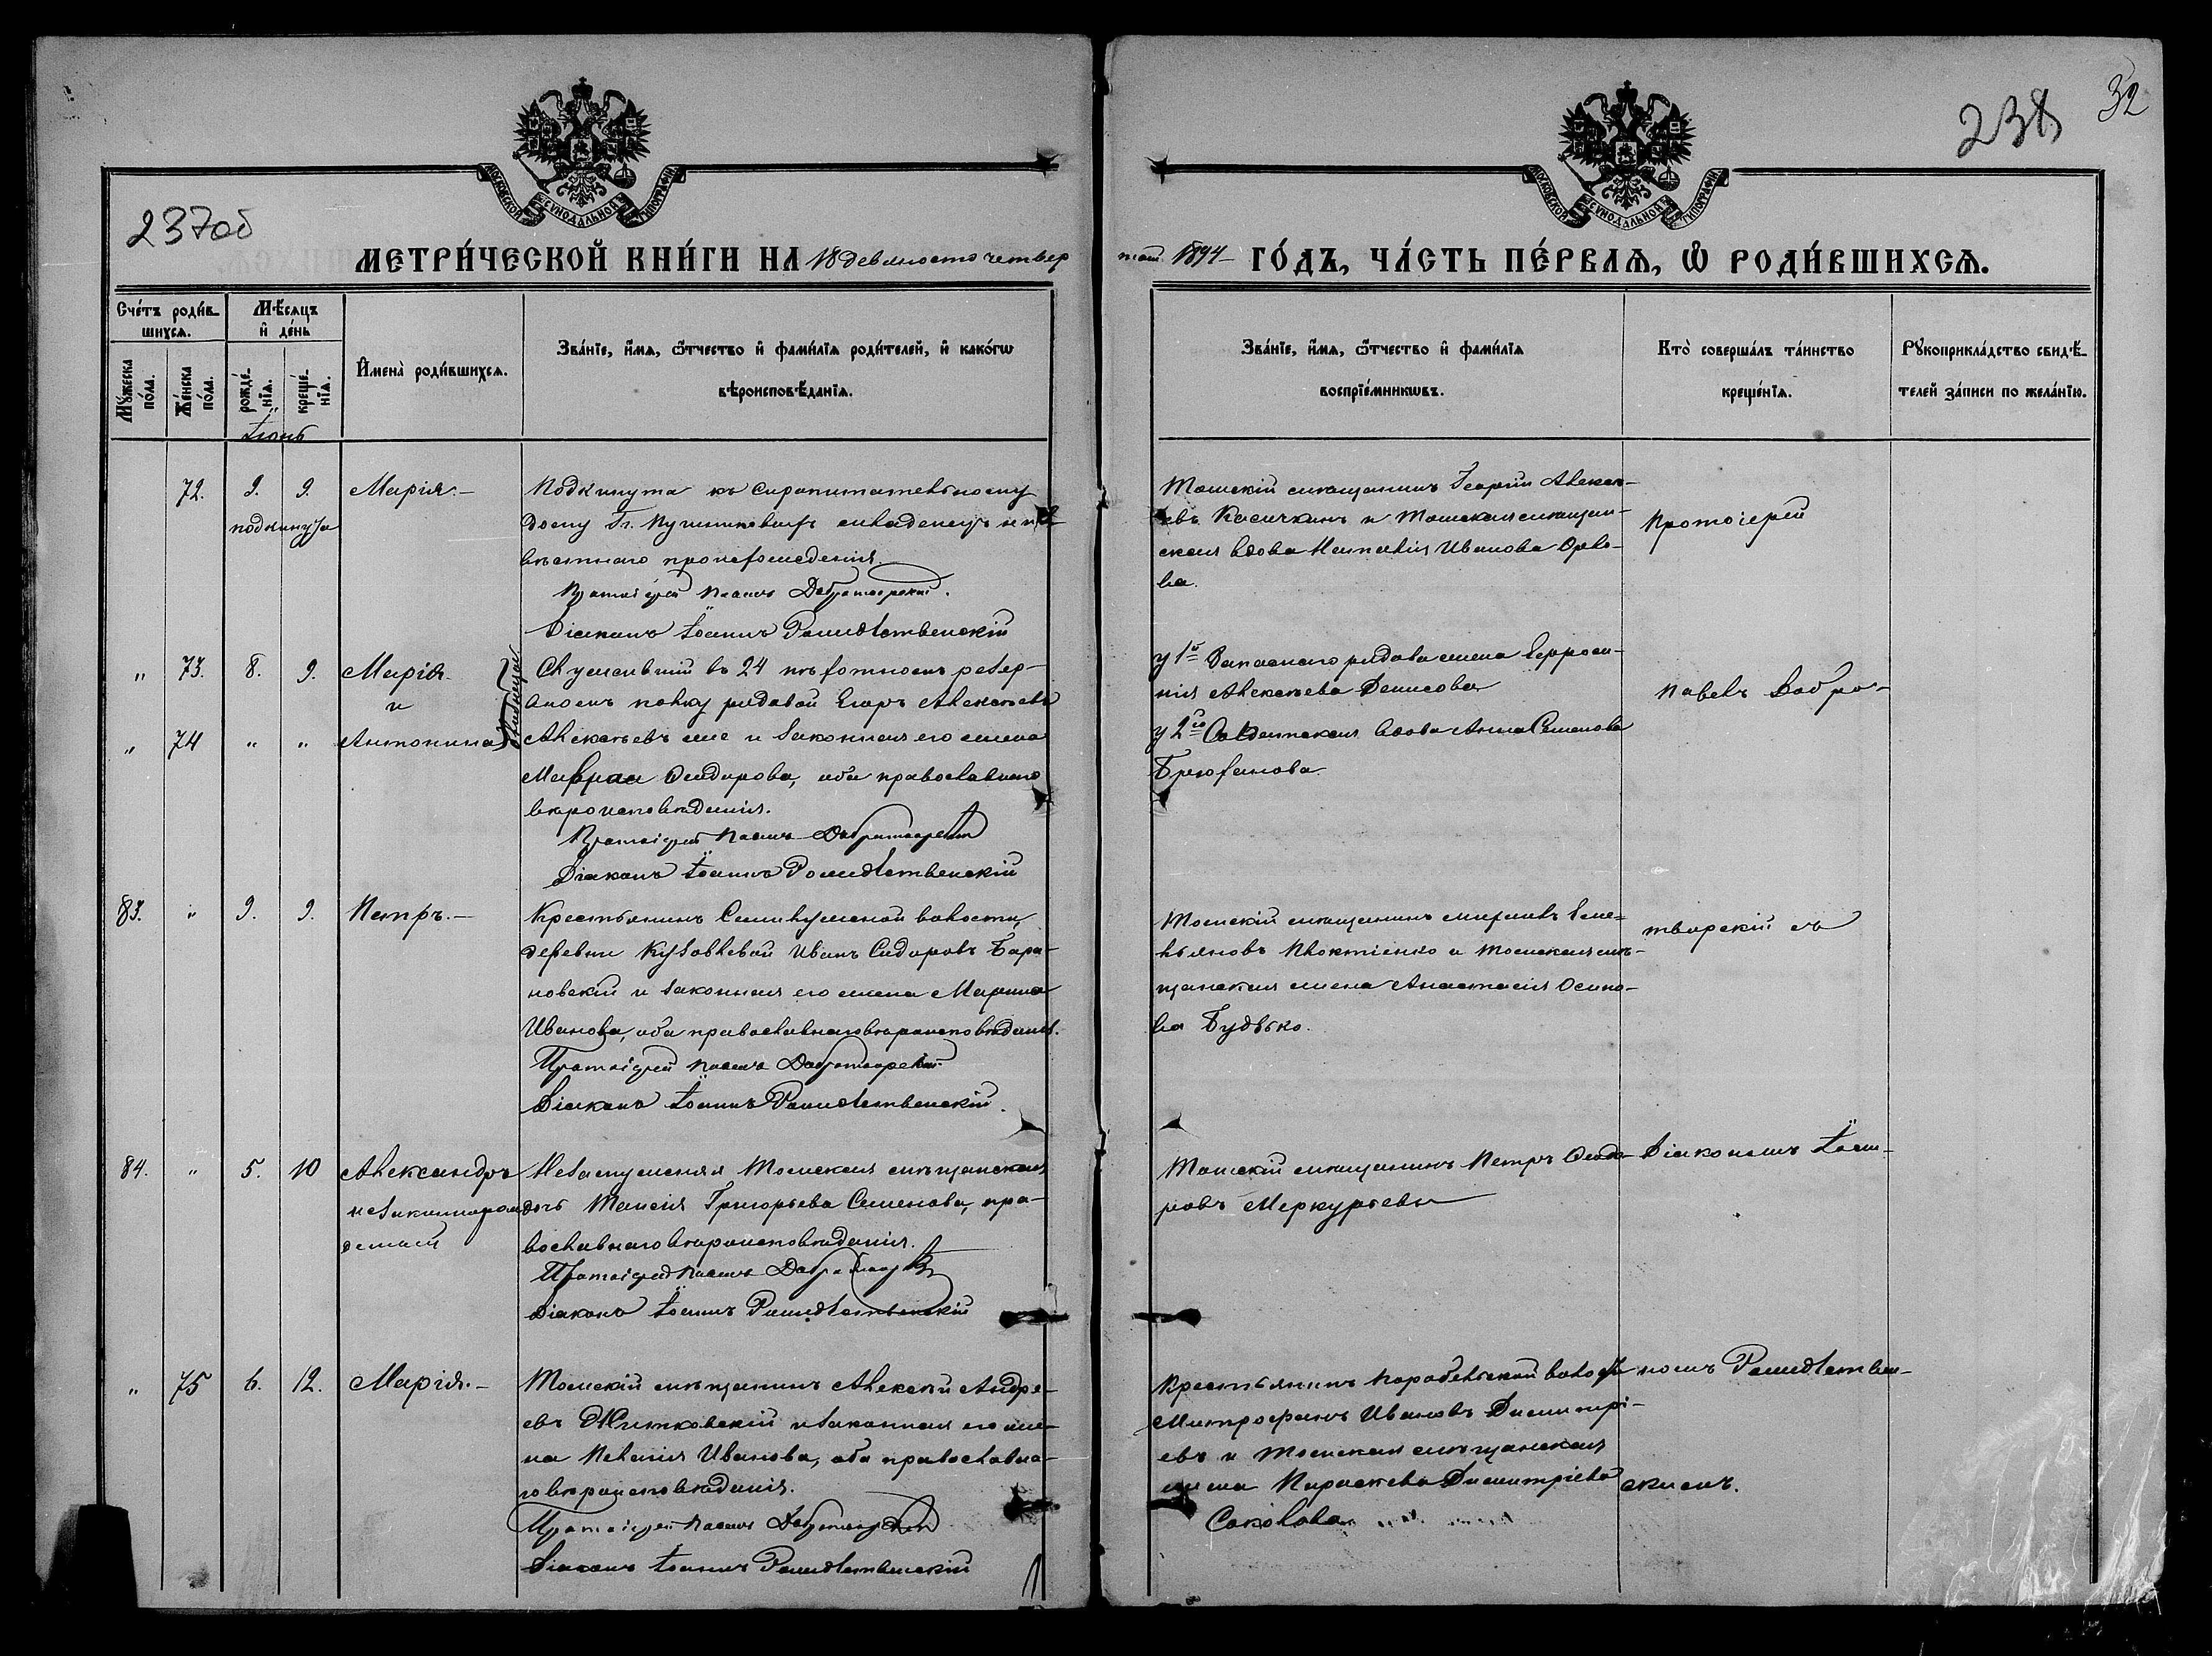 32
238
237об
МОСКОВСКОЙ СѴНОДАЛЬНОЙ ТИПОГРАФІИ
МОСКОВСКОЙ СѴНОДАЛЬНОЙ ТИПОГРАФІИ
МЕТРИ́ЧЕСКОЙ КНИ́ГИ НА 18 девяносто четвер
той 1894 ГО́ДЪ, ЧА́СТЬ ПЕ́РВАѦ, Ѡ РОДИ́ВШИХСѦ.
Сче́тъ роди́в-
шихсѧ.
Мꙋ́жеска по́ла.
Же́нска по́ла.
Мѣ́сѧцъ
и де́нь
рожде́нїѧ.
креще́нїѧ.
Имена̀ роди́вшихсѧ.
Зва́нїе, и́мѧ, ѻ́тчество и фами́лїѧ роди́телей, и како́гѡ
вѣроисповѣ́данїѧ.
Зва́нїе, и́мѧ, ѻ́тчество и фами́лїѧ
воспрїе́мникѡвъ.
Кто̀ соверша́лъ та́инство
креще́нїѧ.
Рꙋкоприкла́дство свидѣ́-
телей за́писи по жела́нїю.
Іюнь
72. 9. 9. Марія.-
подкинута
Подкинута къ Сиропитательному
дому Гг. Пушниковыхъ младенецъ неиз-
вѣстнаго происхожденія.
Протоіерей Павелъ Добротворскій.
Діаконъ Іоаннъ Рождественскій
Томскій мѣщанинъ Георгій Алексѣ-
евъ Касичкинъ и Томская мѣщан-
ская вдова Наталія Иванова Орло-
ва.
Протоіерей
" 73. 8. 9. Марія
и
" 74 " " Антонина
близнецы
Служившій въ 24 пѣхотномъ резер-
вномъ полку рядовой Егоръ Алексѣевъ
Алексѣевъ же и законная его жена
Мавра Сидорова, оба православнаго
вѣроисповѣданія.
Протоіерей Павелъ Добротворскій
Діаконъ Іоаннъ Рождественскій
у 1й Запаснаго рядова жена Евфроси-
нія Алексѣева Денисова
у 2й Солдатская вдова Анна Семенова
Брюханова.
Павелъ Добро-
83. " 9. 9. Петръ.-
Крестьянинъ Семилужной волости,
деревни Кузовлевой Иванъ Сидоровъ Бара-
новскій и законная его жена Марина
Иванова, оба православнаго вѣроисповѣданія.
Протоіерей Павелъ Добротворскій
Діаконъ Іоаннъ Рождественскій.
Томскій мѣщанинъ Емеле-
льяновъ и Томская мѣ-
щанская жена Анастасія Осипо-
ва Будько.
творскій съ
84. " 5. 10 Александръ
незаконнорож
денный
Незамужняя Томская мѣщанская
дочь Таисія Григорьева Семенова, пра-
вославнаго вѣроисповѣданія.
Протоіерей Павелъ Добротворскій
Діаконъ Іоаннъ Рождественскій
Томскій мѣщанинъ Петръ Ѳедо-
ровъ Меркурьевъ
Діакономъ Іоан-
" 75 6. 12. Марія.-
Томскій мѣщанинъ Алексѣй Андре-
евъ Житковскій и законная его же-
на Пелагія Иванова, оба православна-
го вѣроисповѣданія.
Протоіерей Павелъ Добротворскій
Діаконъ Іоаннъ Рождественскій
Крестьянинъ Парабельской волости
Митрофанъ Ивановъ Димитрі-
евъ и Томская мѣщанская
жена Параскева Димитріева
Соколова
номъ Рождествен-
скимъ.